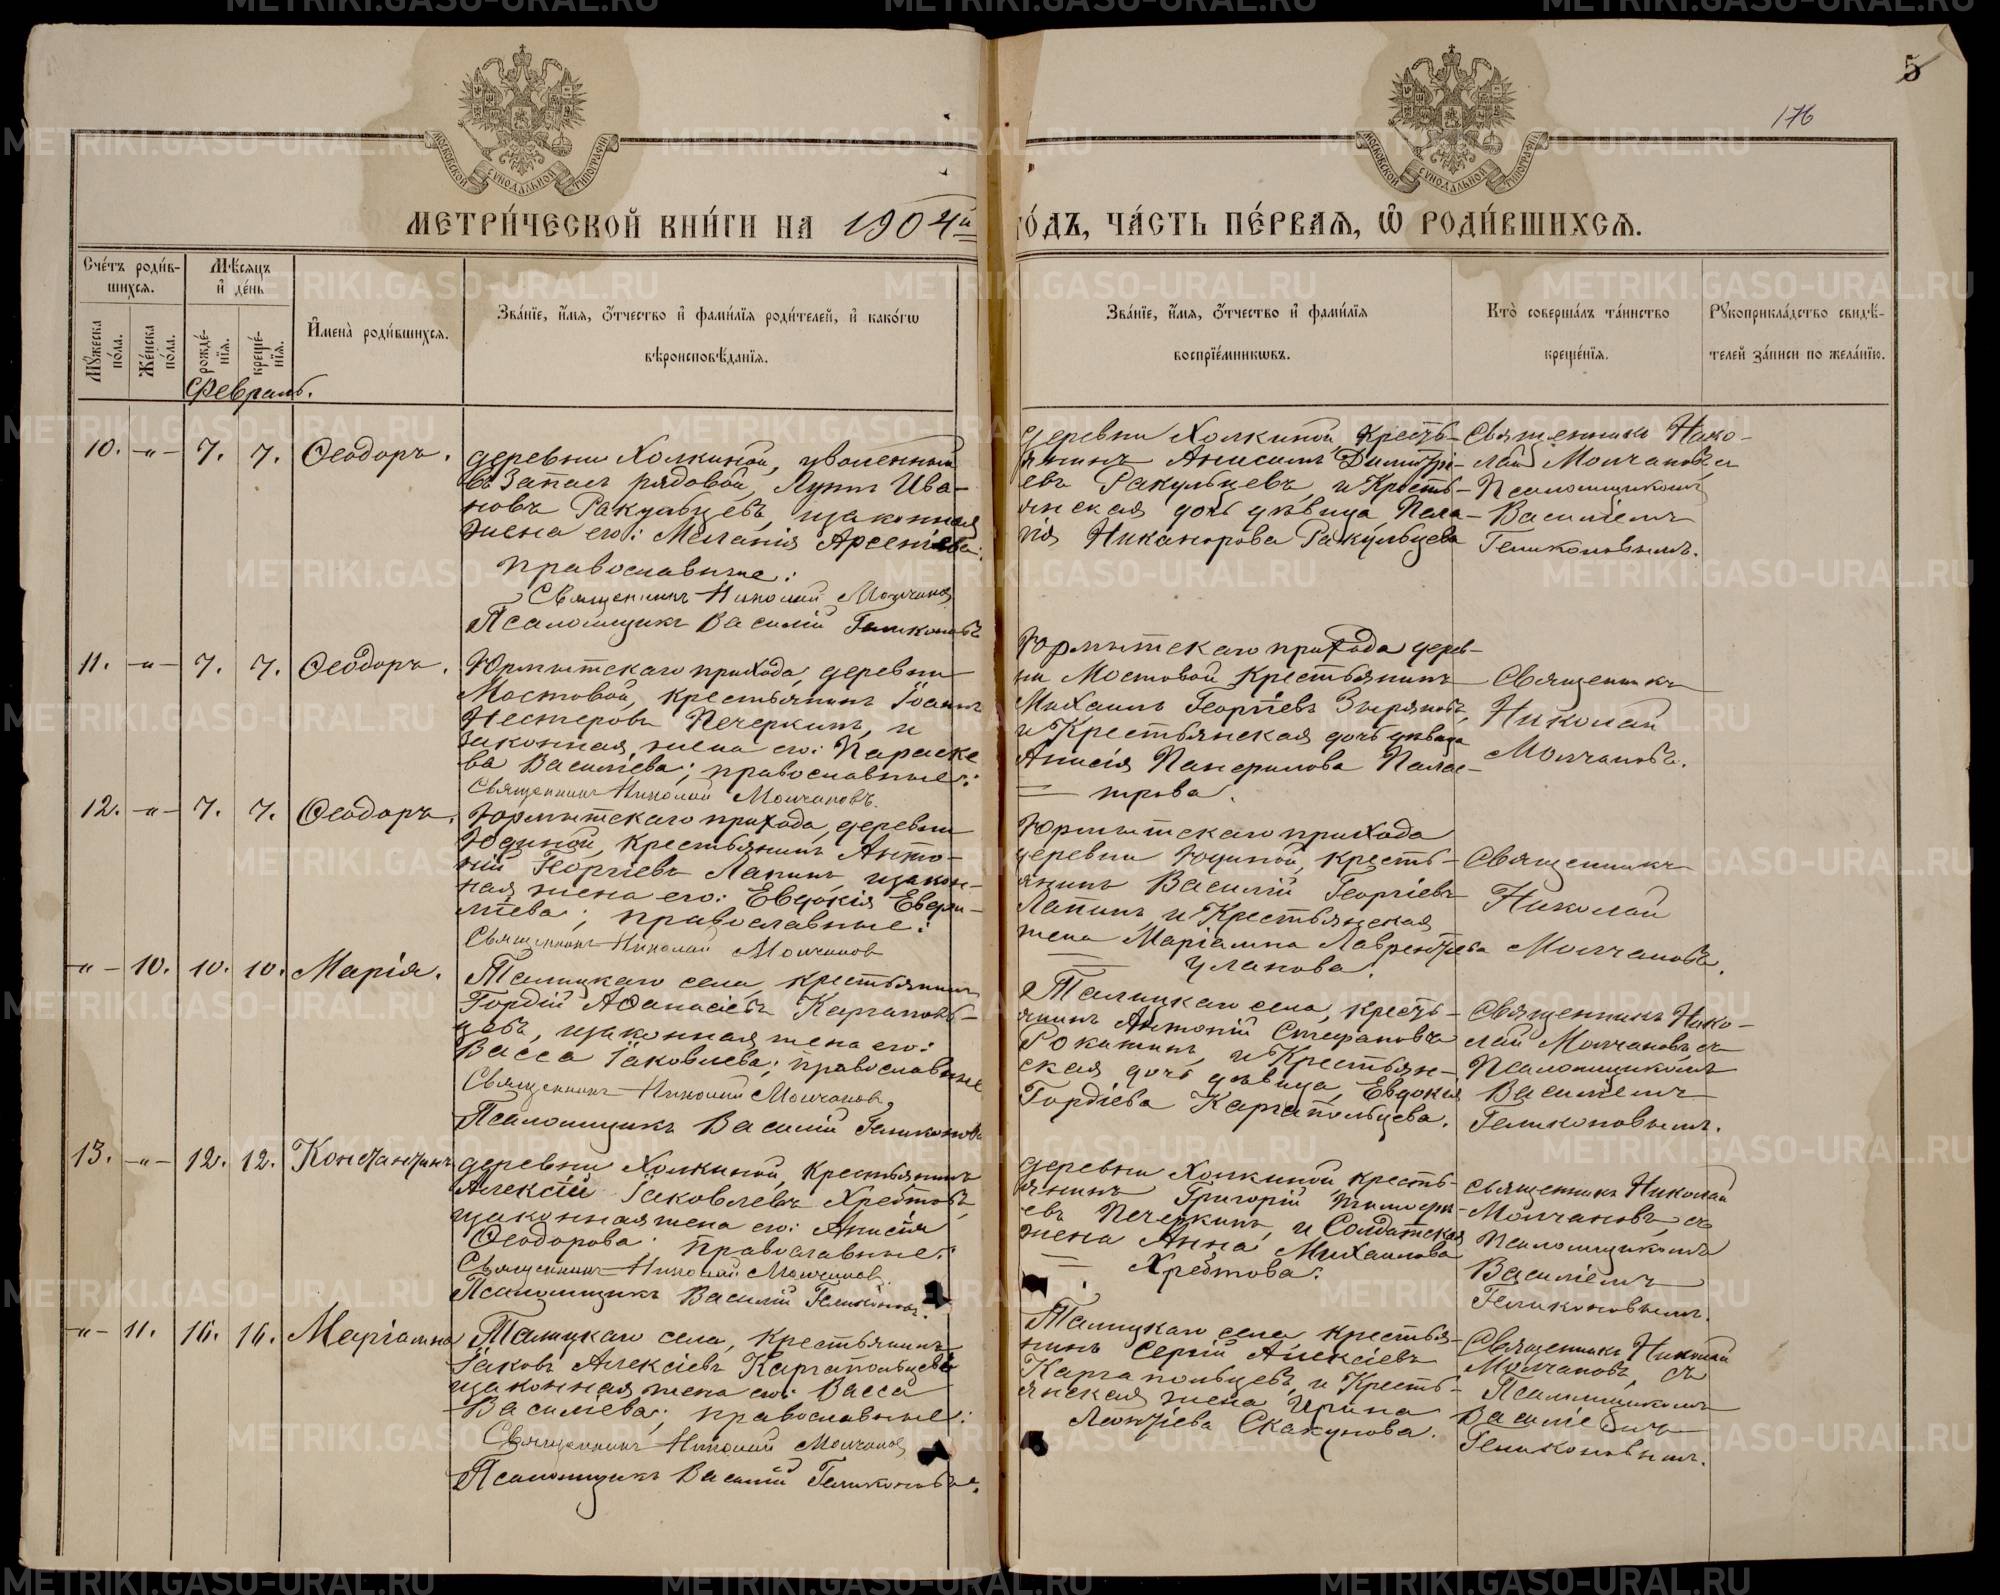 5
176
МОСКОВСКОЙ СѴНОДАЛЬНОЙ ТИПОГРАФІИ
МОСКОВСКОЙ СѴНОДАЛЬНОЙ ТИПОГРАФІИ
МЕТРИ́ЧЕСКОЙ КНИ́ГИ НА 1904й
ГО́ДЪ, ЧА́СТЬ ПЕ́РВАѦ, Ѡ҆ РОДИ́ВШИХСѦ.
Сче́тъ роди́в-
шихсѧ.
Мꙋ́жеска по́ла.
Же́нска по́ла.
Мѣ́сѧцъ
и҆ де́нь
рожде́-
нїѧ.
креще́-
нїѧ.
И҆мена̀ роди́вшихсѧ.
Зва́нїе, и҆́мѧ, ѻ҆́тчество и҆ фами́лїѧ роди́телей, и҆ како́гѡ
вѣроисповѣ́данїѧ.
Зва́нїе, и҆́мѧ, ѻ҆́тчество и҆ фами́лїѧ
воспрїе́мникѡвъ.
Кто̀ соверша́лъ та́инство
креще́нїѧ.
Рꙋкоприкла́дство свидѣ́-
телей за́писи по жела́нїю.
Февраль.
10. -"- 7. 7. Ѳеодоръ.
деревни Холкиной, уволенный
въ запасъ рядовой, Лупъ Ива-
новъ Ракульцевъ, и законная
жена его: Меланія Арсеніева:
православные:
Священникъ Николай Молчановъ
Псаломщикъ Василій Геликоновъ
деревни Холкиной, Кресть-
янинъ Анисимъ Димитрі-
евъ Ракульцевъ, и Кресть-
янская дочь дѣвица Пела-
гія Никанорова Ракульцева
Священникъ Нико-
лай Молчановъ, съ
Псаломщикомъ
Василіемъ
Геликоновымъ.
11. -"- 7. 7. Ѳеодоръ.
Юрмытскаго прихода, деревни
Мостовой, крестьянинъ Іоаннъ
Нестеровъ Печеркинъ, и
законная жена его: Параске
ва Василіева; православные:
Священникъ Николай Молчановъ.
Юрмытскаго прихода дерев-
ни Мостовой Крестьянинъ
Михаилъ Георгіевъ Зыряновъ,
и Крестьянская дочь дѣвица
Анисія Панфилова Пала-
= трова.
Священникъ
Николай
Молчановъ.
12. -"- 7. 7. Ѳеодоръ.
Юрмытскаго прихода, деревни
Юдиной, Крестьянинъ Анто-
ній Георгіевъ Лапинъ, и закон-
ная жена его: Евдокія Евфи-
міева; православные:
Священникъ Николай Молчановъ
Юрмытскаго прихода
деревни Юдиной, кресть-
янинъ Василій Георгіевъ
Лапинъ, и Крестьянская
жена Маріамна Лаврентіева
= Уланова.
Священникъ
Николай
Молчановъ.
-"- 10. 10. 10. Марія.
Талицкаго села, крестьянинъ
Гордій Аѳанасіевъ Каргаполь-
цевъ, и законная жена его:
Васса Іаковлева; православные
Священникъ Николай Молчановъ,
Псаломщикъ Василій Геликоновъ
Талицкаго села, кресть-
янинъ Антоній Стефановъ
Рокатинъ, и Крестьян-
ская дочь дѣвица, Евдокія
Гордіева Каргапольцева.
Священникъ Нико-
лай Молчановъ, съ
Псаломщикомъ
Василіемъ
Геликоновымъ.
13. -"- 12. 12. Константинъ
деревни Холкиной, Крестьянинъ
Алексій Іаковлевъ Хребтовъ,
и законная жена его: Анисія
Ѳеодорова: православные:
Священникъ Николай Молчановъ.
Псаломщикъ Василій Геликоновъ.
деревни Холкиной кресть-
янинъ Григорій Тимофи-
евъ Печеркинъ, и Солдатская
жена Анна Михаилова
= Хребтова.
Священникъ Николай
Молчановъ, съ
Псаломщикомъ
Василіемъ
Геликоновымъ.
-"- 11. 16. 16. Маріамна
Талицкаго села, крестьянинъ
Іаковъ Алексіевъ Каргапольцевъ
и законная жена его: Васса
Василіева; православные:
Священникъ Николай Молчановъ
Псаломщикъ Василій Геликоновъ.
Талицкаго села крестья-
нинъ Сергій Алексіевъ
Каргапольцевъ, и Кресть-
янская жена Ирина
Леонтіева Скакунова.
Священникъ Николай
Молчановъ, съ
Псаломщикомъ
Василіемъ
Геликоновымъ.
METRIKI.GASO-URAL.RU